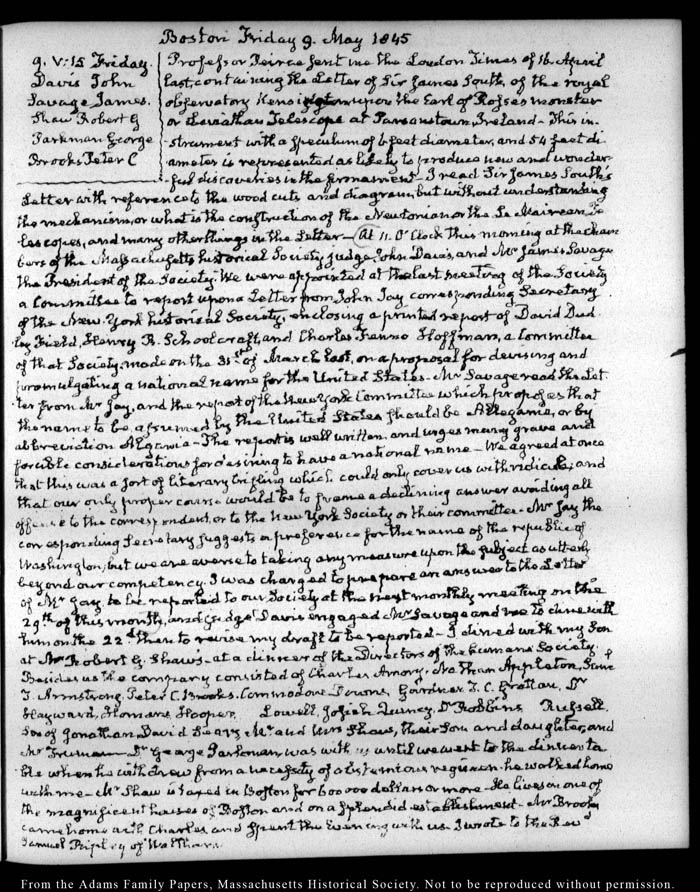 Boston Friday 9. May 1845
9. V:15 Friday.
Davis John
Savage James.
Shaw Robert G
Parkman George
Brooks Peter C
Professor Peirce sent me the London Times of 16 April
last, containing the Letter of Sir James South, of the royal
observatory Kensington upon the Earl of Rosses monster
or Leviathan Telescope at Parsonstown, Ireland - This in-
strument with a speculum of 6 feet diameter, and 54 feet di-
ameter is represented as likely to produce new and wonder-
ful discoveries in the firmament - I read Sir James South's
Letter with reference to the wood cuts and diagram, but without understanding
the mechanism, or what is the construction of the Newtonian or the Le Mairean Te-
lescopes, and many other things in the Letter - At 11. O'Clock this morning at the Cham
bers of the Massachusetts historical Society, judge John Davis, and Mr James Savage
the President of the Society. We were appointed at the last meeting of the Society
a Committee to report upon a Letter from John Jay corresponding Secretary
of the New-York historical Society, enclosing a printed report of David Dud
ley Field, Henry R. Schoolcraft, and Charles Fenno Hoffman, a Committee
of that Society, made on the 31st of March last, on a proposal for devising and
promulgating a national name for the United States - Mr Savage read the Let
ter from Mr Jay, and the report of the New York Committee which proposes that
the name to be assumed by the United States should be Allegania, or by
abbreviation Algania - The report is well written and urges many grave and
forcible considerations for desiring to have a national name - We agreed at once
that this was a sort of literary trifling which could only cover us with ridicule, and
that our only proper course would be to frame a declining answer avoiding all
offense to the correspondent, or to the New York Society or their committee - Mr Jay the
corresponding Secretary suggests a preference for the name of the republic of
Washington, but we are averse to taking any measure upon the subject as utterly
beyond our competency. I was charged to prepare an answer to the Letter
of Mr Jay to be reported to our Society at the next monthly meeting on the
29th of this month, and judge Davis engaged Mr Savage and me to dine with
him on the 22d then to revise my draft to be reported - I dined with my Son
at Mr Robert G. Shaw's - at a dinner of the Directors of the humane Society.
Besides us the company consisted of Charles Amory, Nathan Appleton,
T. Armstrong, Peter C. Brooks, Commodore Downs, Gardner, T. C. Grattan, Dr
Hayward, Homans, Hooper, Lowell, Josiah Quincy, Dr Robbins, Russell,
Son of Jonathan, David Sears, Mr and Mrs Shaw, their Son and daughter, and
Mr Truman Dr George Parkman, was with us until we went to the dinner ta
ble when he withdrew from a necessity of abstemious regimen. he walked home
with me - Mr Shaw is taxed in Boston for 600 000 dollars or more - He lives in one of
the magnificent houses of Boston and on a splendid establishment - Mr Brooks
came home with Charles and spent the Evening with us. I wrote to the Revd
Samuel Ripley of Waltham.
From the Adams Family Papers, Massachusetts Historical Society. Not to be reproduced without permission.